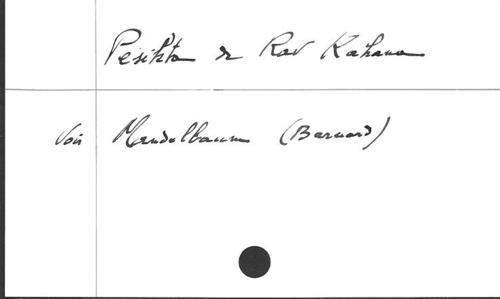 Pesikta de Rav Kahana
Voir Mandelbaum (Bernard)